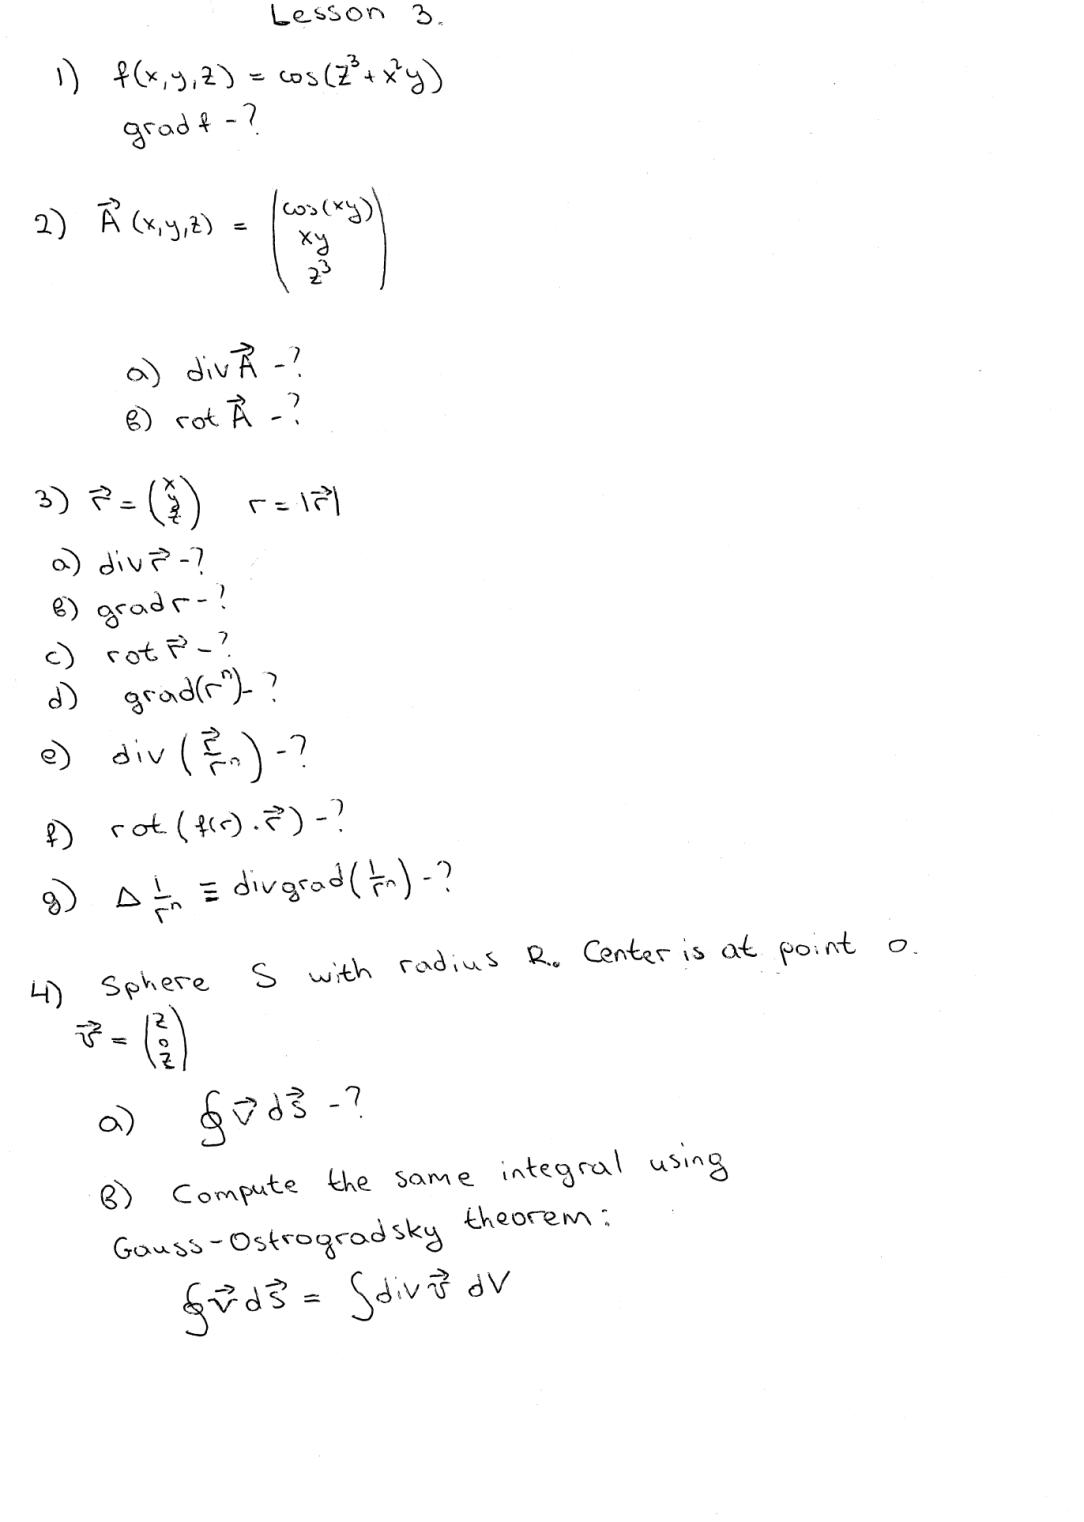 Lesson 3.
1) f(x,y,z) = cos(z³+x²y)
grad f -?
2) A⃗ (x,y,z) = (cos(xy)
xy
z³)
a) div A⃗ -?
в) rot A⃗ -?
3) r⃗ = (x y z) r = |r⃗|
a) div r⃗ -?
в) grad r -?
c) rot r⃗ -?
d) grad(rⁿ) -?
e) div (r⃗/rⁿ) -?
f) rot (f(r)·r⃗) -?
g) Δ 1/rⁿ ≡ div grad(1/rⁿ) -?
4) Sphere S with radius R. Center is at point o.
v⃗ = (z
o
z)
a) ∮v⃗ dS⃗ -?
в) Compute the same integral using
Gauss-Ostrogradsky theorem:
∮v⃗ dS⃗ = ∫div v⃗ dV